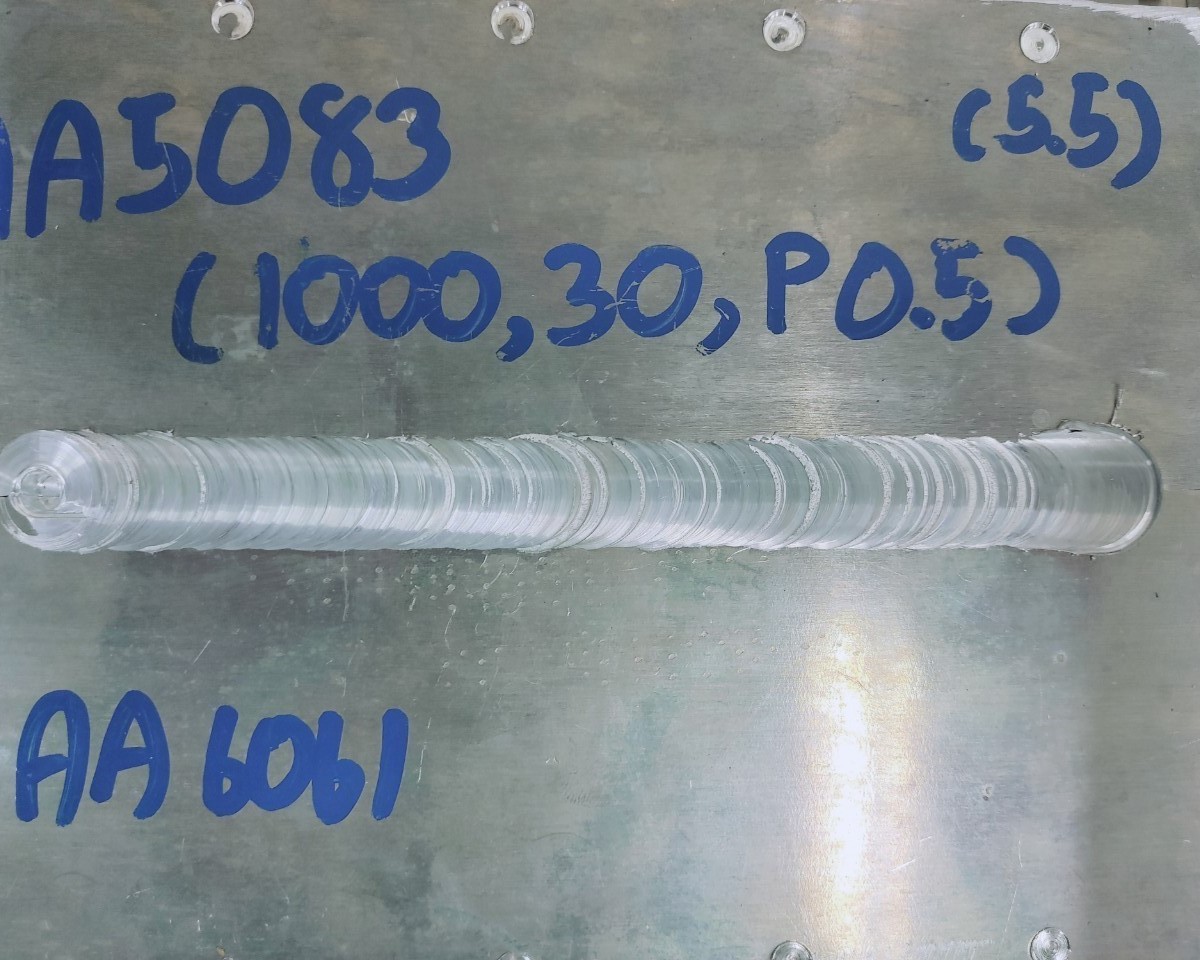 AA5083 (5.5)
(1000,30,P0.5)
AA6061